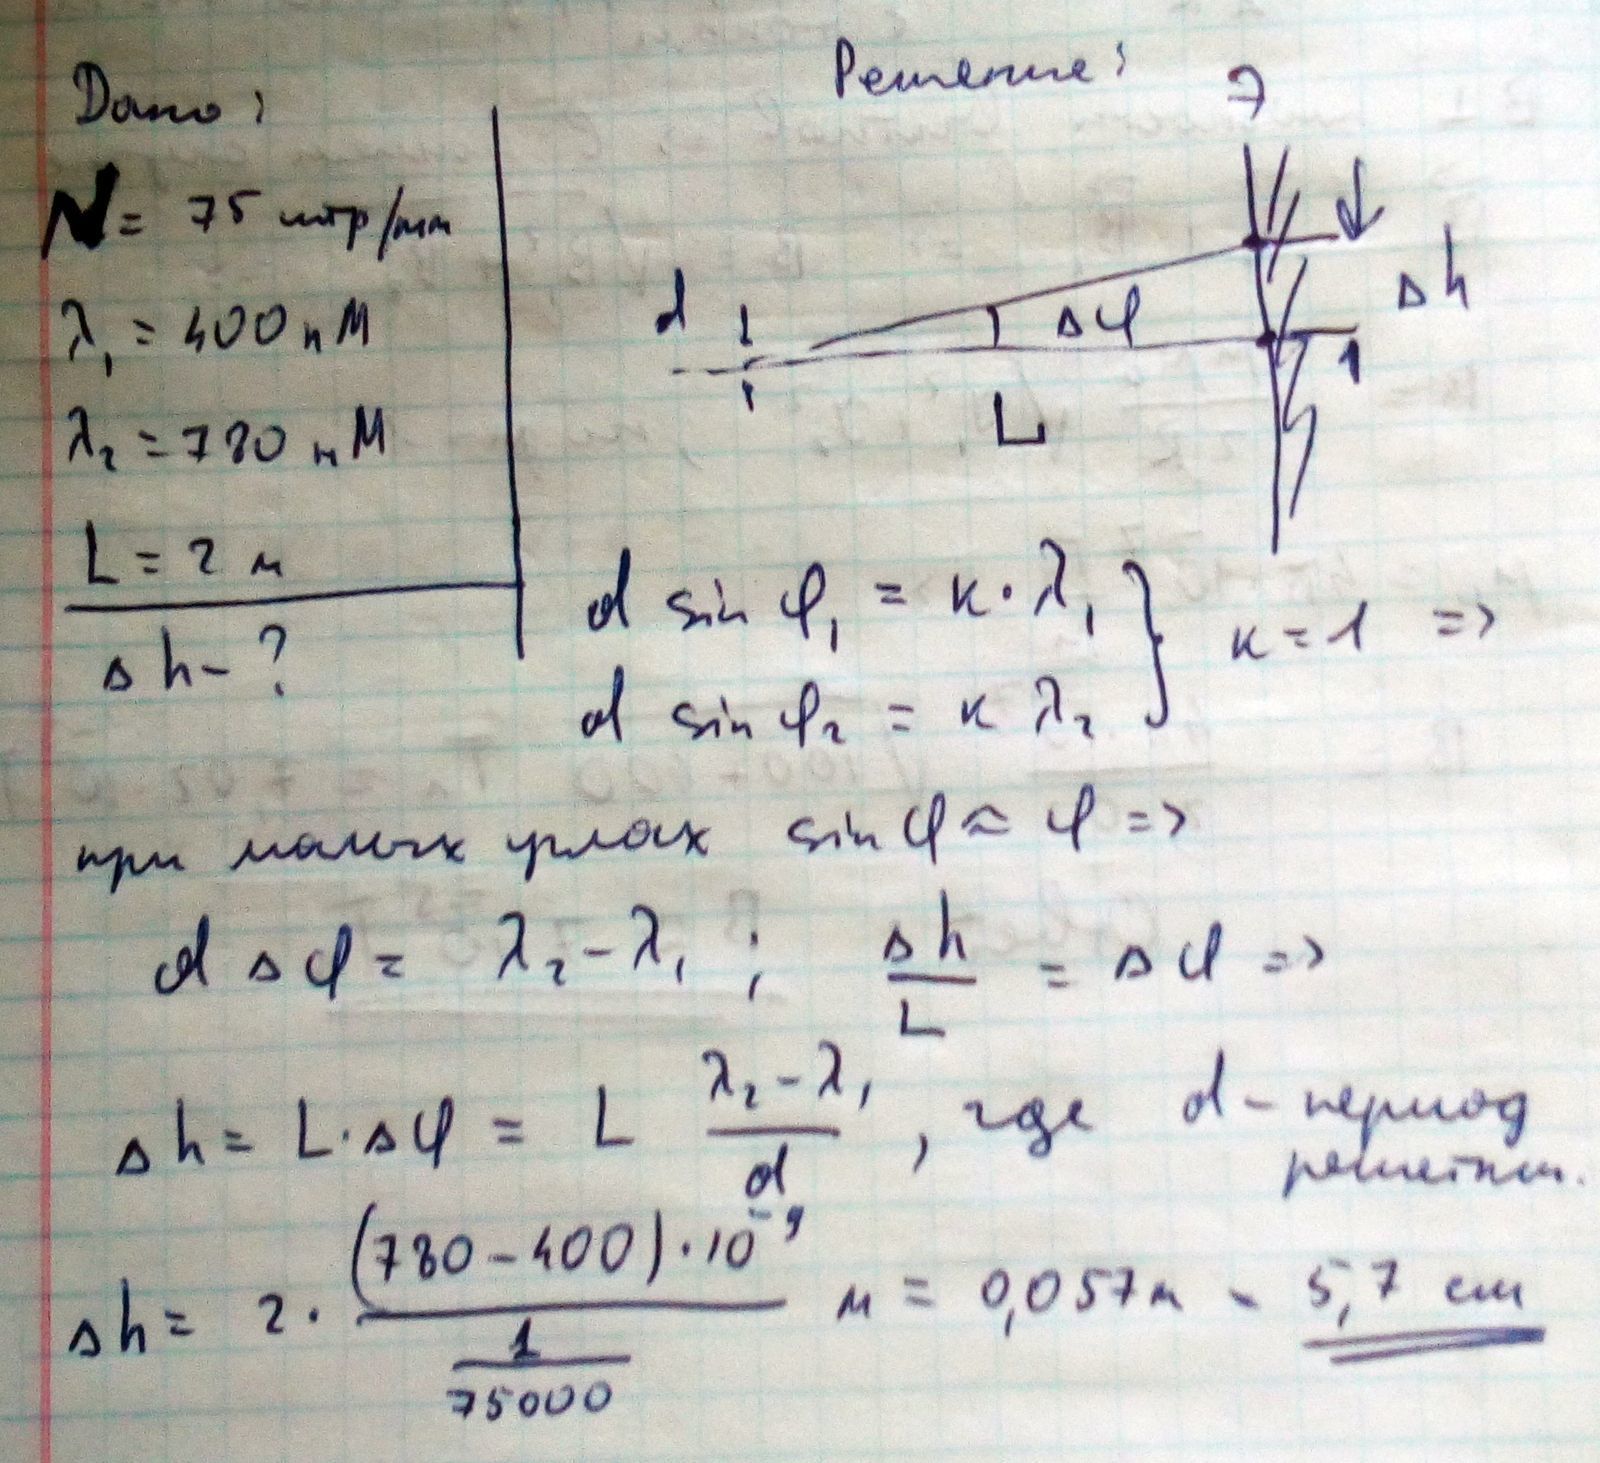 Дано:
N = 75 штр/мм
λ₁ = 400 нм
λ₂ = 780 нм
L = 2 м
Δh - ?
Решение:
d
Δφ
Δh
L
1
d sin φ₁ = к · λ₁
d sin φ₂ = к λ₂
к = 1 =>
при малых углах sin φ ≈ φ =>
d Δφ = λ₂ - λ₁ ; Δh/L = Δφ =>
Δh = L · Δφ = L (λ₂ - λ₁)/d , где d - период
решетки.
Δh = 2 · (780 - 400) · 10⁻⁹ / (1/75000) м = 0,057 м - 5,7 см